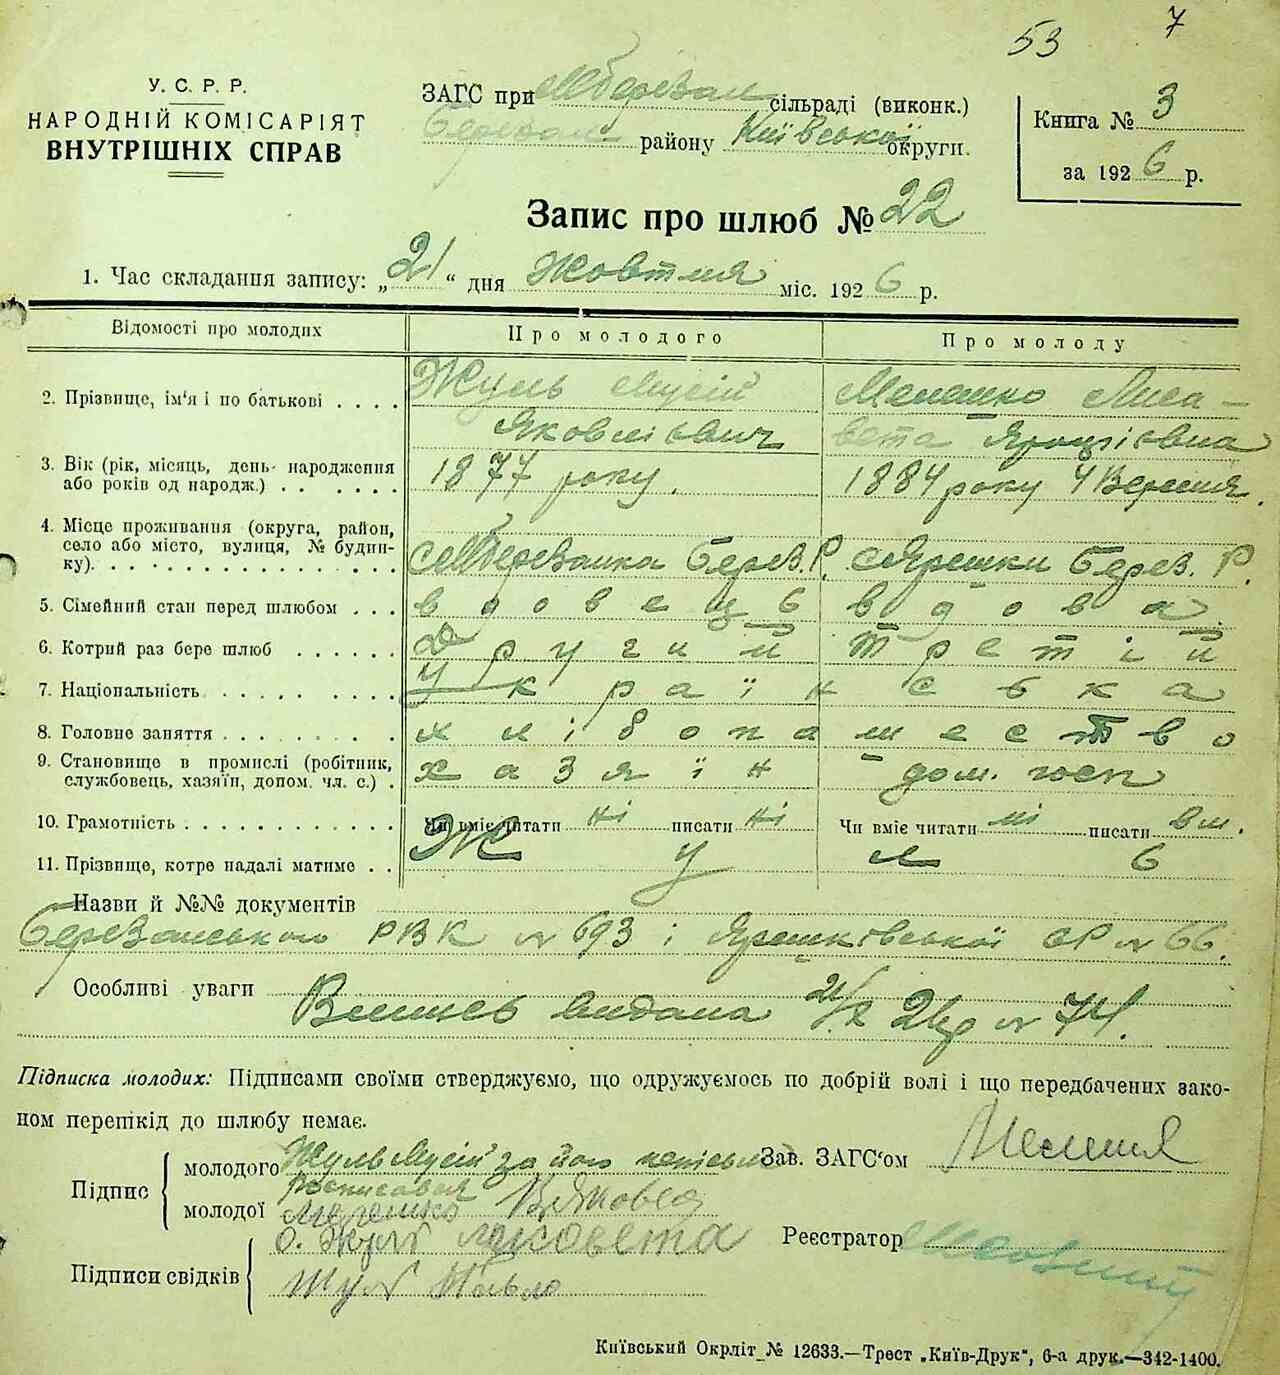 53 7
У. С. Р. Р.
НАРОДНІЙ КОМІСАРІЯТ
ВНУТРІШНІХ СПРАВ
ЗАГС при сільраді (виконк.)
району Київської округи.
Книга № 3
за 1926 р.
Запис про шлюб № 22
1. Час складання запису: „21“ дня Жовтня міс. 1926 р.
Відомості про молодих Про молодого Про молоду
2. Прізвище, ім'я і по батькові . . . . Жуль Мусій Яковлівич Мелешко Лиса-
вета
3. Вік (рік, місяць, день народження
або років од народж.) . . . . . . . 1877 року. 1884 року 4 Вересня.
4. Місце проживання (округа, район,
село або місто, вулиця, № будин-
ку). . . . . . . . . . . . . . . Берез. Р. с Ярешки Берез. Р.
5. Сімейний стан перед шлюбом . . . вдовець вдова
6. Котрий раз бере шлюб . . . . . . Другий третій
7. Національність . . . . . . . . . Українсвка
8. Головне заняття . . . . . . . . . хлібопашество
9. Становище в промислі (робітник,
службовець, хазяїн, допом. чл. с.) . хазяїн дом. госп
10. Грамотність . . . . . . . . . . . . Чи вміє читати ні писати ні Чи вміє читати ні писати вм.
11. Прізвище, котре надалі матиме . . Ж у л ь
Назви й №№ документів
Березанського РВК № 693 і Ярешківської СР № 66.
Особливі уваги видана 21/X 26р № 74.
Підписка молодих: Підписами своїми стверджуємо, що одружуємось по добрій волі і що передбачених зако-
ном перепкід до шлюбу немає.
Підпис
молодого Жуль Мусій за його
росписався
молодої Мелешко
Зав. ЗАГС'ом
Підписи свідків
Жуль Павло
Реєстратор
Київський Окрліт № 12633.—Трест „Київ-Друк“, 6-а друк.—342-1400.